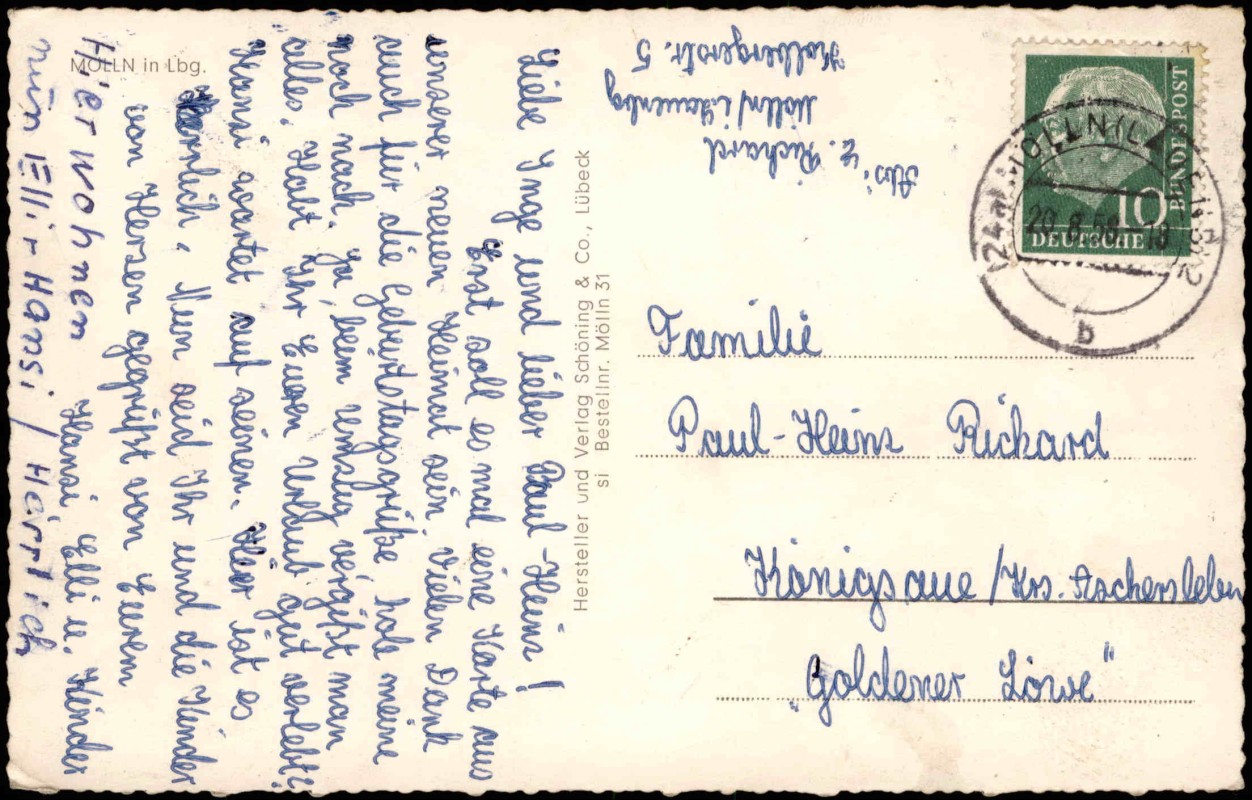 MÖLLN in Lbg.
Liebe Inge und lieber Paul-Heinz!
Erst soll es mal eine Karte aus
unserer neuen Heimat sein. Vielen Dank
auch für die Geburtstagsgrüße, hole meine
noch nach. Ja, beim Umzug vergißt man
alles. Habt Ihr Euren Urlaub gut verlebt?
Hansi wartet auf seinen. Hier ist es
herrlich. Nun seid Ihr und die Kinder
von Herzen gegrüßt von Eurem
Hansi, Elli u. Kinder
Hier wohnen
nun Elli + Hansi / Herrlich
Hersteller und Verlag Schöning & Co., Lübeck
si Bestellnr. Mölln 31
Abs. E. Rickard
Mölln/i. Lauenbg
Kolbergerstr. 5
10
DEUTSCHE
BUNDESPOST
24a MÖLLN (LAUENB) 2
20.8.58-18
b
Familie
Paul-Heinz Rickard
Königsaue / Krs. Aschersleben
Goldener Löwe"